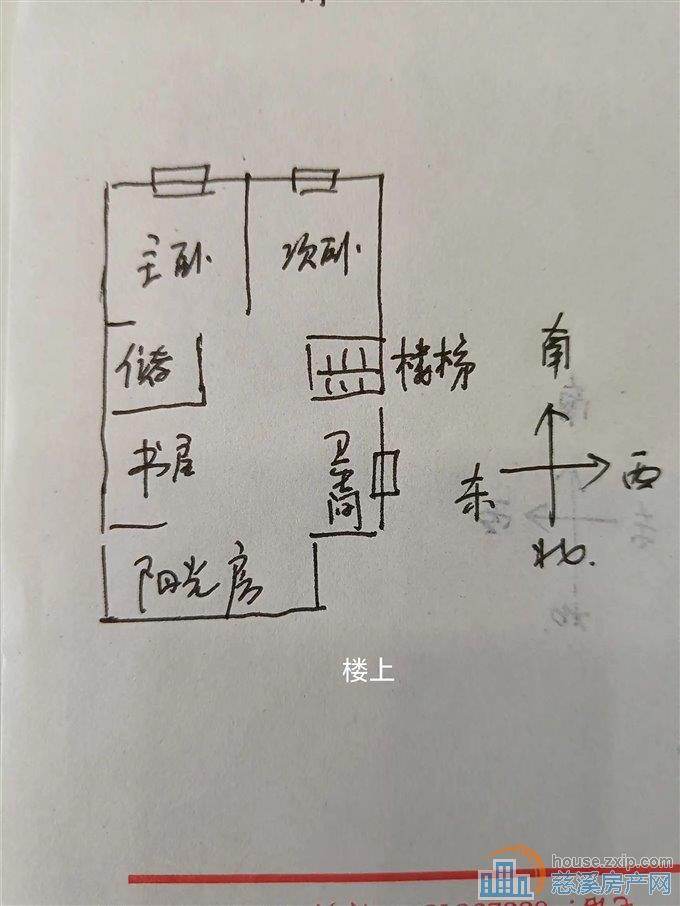 主卧
次卧
储存
楼梯
书房
卫生间
阳光房
南
东
西
北.
楼上
house.zxip.com
慈溪房产网